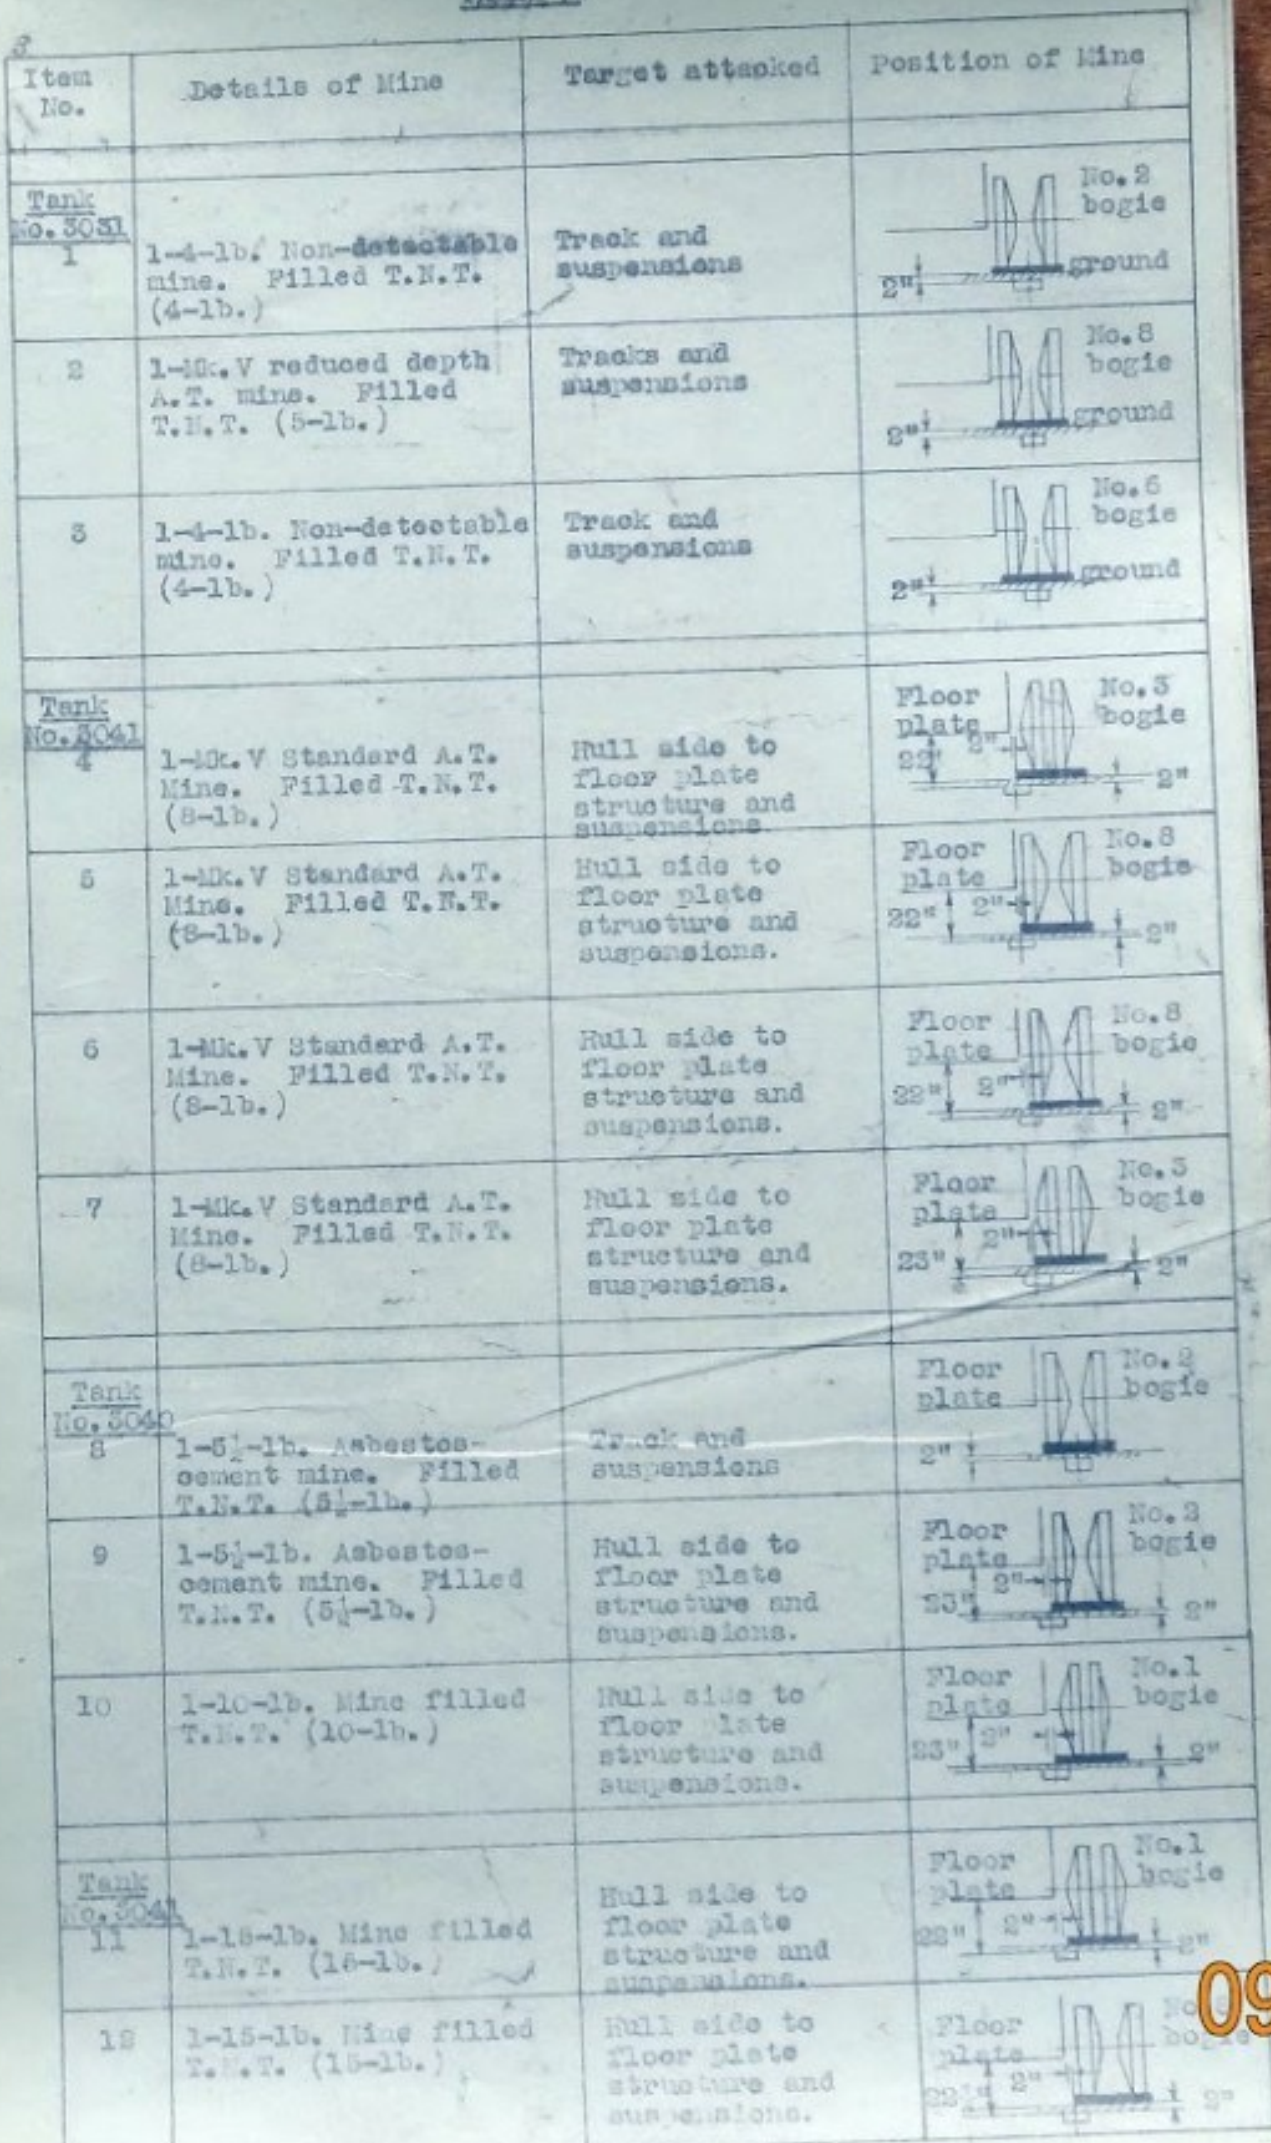 Item No.
Details of Mine
Target attacked
Position of Mine
Tank
No. 3031
1
1-4-lb. Non-detectable
mine. Filled T.N.T.
(4-lb.)
Track and
suspensions
No.2
bogie
ground
2"
2
1-Mk.V reduced depth
A.T. mine. Filled
T.N.T. (5-lb.)
Tracks and
suspensions
No.8
bogie
ground
2"
3
1-4-lb. Non-detectable
mine. Filled T.N.T.
(4-lb.)
Track and
suspensions
No.6
bogie
ground
2"
Tank
No.3041
4
1-Mk.V Standard A.T.
Mine. Filled T.N.T.
(8-lb.)
Hull side to
floor plate
structure and
suspensions.
Floor
plate
No.3
bogie
2"
22"
2"
5
1-Mk.V Standard A.T.
Mine. Filled T.N.T.
(8-lb.)
Hull side to
floor plate
structure and
suspensions.
Floor
plate
No.8
bogie
22"
2"
2"
6
1-Mk.V Standard A.T.
Mine. Filled T.N.T.
(8-lb.)
Hull side to
floor plate
structure and
suspensions.
Floor
plate
No.8
bogie
22"
2"
2"
7
1-Mk.V Standard A.T.
Mine. Filled T.N.T.
(8-lb.)
Hull side to
floor plate
structure and
suspensions.
Floor
plate
No.3
bogie
23"
2"
2"
Tank
No.3040
8
1-5½-lb. Asbestos-
cement mine. Filled
T.N.T. (5½-lb.)
Track and
suspensions
Floor
plate
No.2
bogie
2"
9
1-5½-lb. Asbestos-
cement mine. Filled
T.N.T. (5½-lb.)
Hull side to
floor plate
structure and
suspensions.
Floor
plate
bogie
2"
23"
2"
10
1-10-lb. Mine filled
T.N.T. (10-lb.)
Hull side to
floor plate
structure and
suspensions.
Floor
plate
No.1
bogie
23"
2"
2"
Tank
11
Mine filled
T.N.T.
Hull side to
floor plate
structure and
suspensions.
Floor
plate
No.1
bogie
22"
2"
2"
12
1-15-lb. Mine filled
T.N.T. (15-lb.)
Hull side to
floor plate
structure and
suspensions.
Floor
plate
2"
2"
09